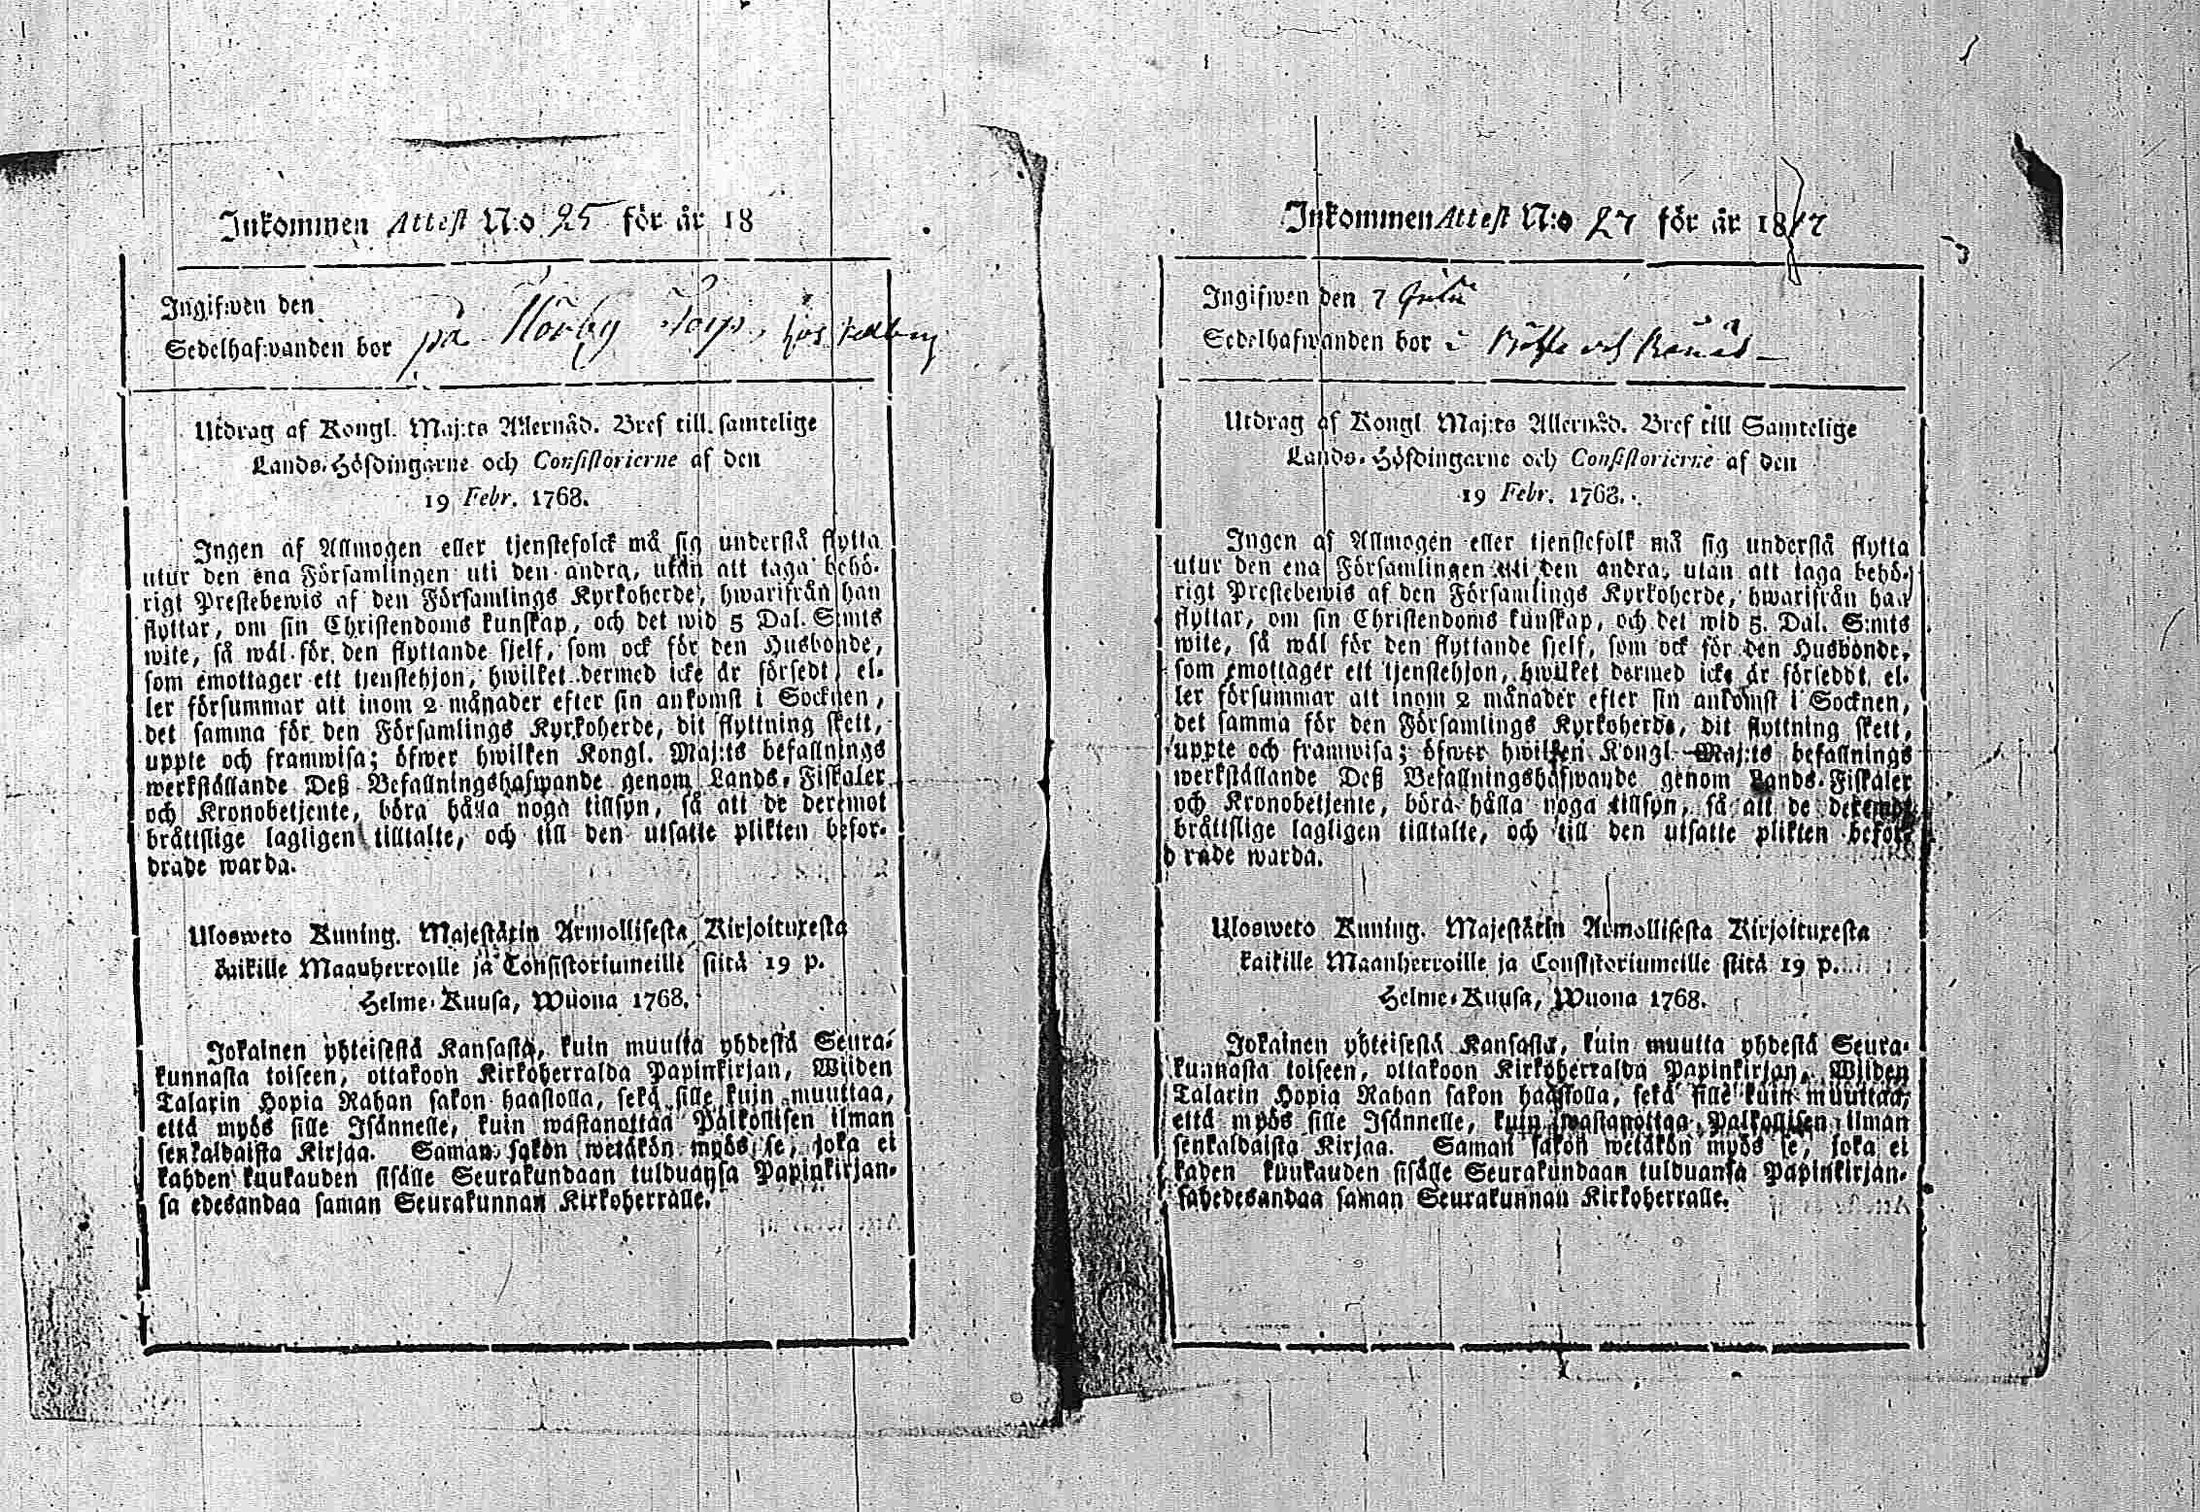 Inkommen Attest N:o 25 för år 18
Ingifwen den
Sedelhafwanden bor på Norby Torp, hos
Utdrag af Kongl. Maj:ts Allernåd. Bref till samtelige
Lands-Höfdingarne och Consistorierne af den
19 Febr. 1768.
Ingen af Allmogen eller tjenstefolck må sig understå flytta
utur den ena Församlingen uti den andra, utan att taga behö-
rigt Prestebewis af den Församlings Kyrkoherde, hwarifrån han
flyttar, om sin Christendoms kunskap, och det wid 5 Dal. S:mts
wite, så wäl för den flyttande sjelf, som ock för den Husbonde,
som emottager ett tjenstehjon, hwilket dermed icke är försedt, el-
ler försummar att inom 2 månader efter sin ankomst i Socknen,
det samma för den Församlings Kyrkoherde, dit flyttning skett,
uppte och framwisa; öfwer hwilken Kongl. Maj:ts befallnings
werkställande Deß Befallningshafwande genom Lands-Fiskaler
och Kronobetjente, böra hålla noga tillsyn, så att de deremot
bråttslige lagligen tilltalte, och till den utsatte plikten befor-
drade warda.
Ulosweto Kuning. Majestätin Armollisesta Kirjoituxesta
kaikille Maanherroille ja Consistoriumeille siitä 19 p.
Helme-Kuusa, Wuona 1768.
Jokainen yhteisestä Kansasta, kuin muutta yhdestä Seura-
kunnasta toiseen, ottakoon Kirkoherralda Papinkirjan, Wiiden
Talarin Hopia Rahan sakon haastolla, sekä sille kuin muuttaa,
että myös sille Isännelle, kuin wastanottaa Palkollisen ilman
senkaldaista Kirjaa. Saman sakon wetäkön myös se, joka ei
kahden kuukauden sisälle Seurakundaan tulduansa Papinkirjan-
sa edesandaa saman Seurakunnan Kirkoherralle.
Inkommen Attest N:o 27 för år 1817
Ingifwen den 7
Sedelhafwanden bor i
Utdrag af Kongl. Maj:ts Allernåd. Bref till Samtelige
Lands-Höfdingarne och Consistorierne af den
19 Febr. 1768.
Ingen af Allmogen eller tjenstefolk må sig understå flytta
utur den ena Församlingen uti den andra, utan att taga behö-
rigt Prestebewis af den Församlings Kyrkoherde, hwarifrån han
flyttar, om sin Christendoms kunskap, och det wid 5. Dal. S:mts
wite, så wäl för den flyttande sjelf, som ock för den Husbonde,
som emottager ett tjenstehjon, hwilket dermed icke är förseddt, el-
ler försummar att inom 2 månader efter sin ankomst i Socknen,
det samma för den Församlings Kyrkoherde, dit flyttning skett,
uppte och framwisa; öfwer hwilken Kongl. Maj:ts befallnings
werkställande Deß Befallningshafwande genom Lands-Fiskaler
och Kronobetjente, böra hålla noga tillsyn, så att de deremot
bråttslige lagligen tilltalte, och till den utsatte plikten befor-
drade warda.
Ulosweto Kuning. Majestätin Armollisesta Kirjoituxesta
kaikille Maanherroille ja Consistoriumeille siitä 19 p.
Helme-Kuusa, Wuona 1768.
Jokainen yhteisestä Kansasta, kuin muutta yhdestä Seura-
kunnasta toiseen, ottakoon Kirkoherralda Papinkirjan, Wiiden
Talarin Hopia Rahan sakon haastolla, sekä sille kuin muuttaa,
että myös sille Isännelle, kuin wastanottaa Palkollisen ilman
senkaldaista Kirjaa. Saman sakon wetäkön myös se, joka ei
kahen kuukauden sisälle Seurakundaan tulduansa Papinkirjan-
sahedesandaa saman Seurakunnan Kirkoherralle.